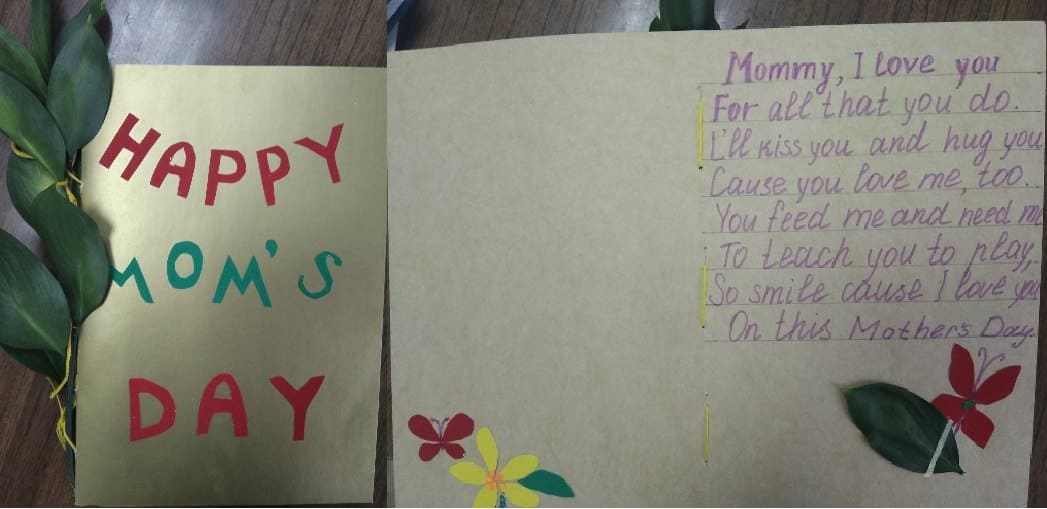 HAPPY
MOM'S
DAY
Mommy, I love you
For all that you do.
I'll kiss you and hug you
Cause you love me, too.
You feed me and need me
To teach you to play,
So smile cause I love you
On this Mothers Day.